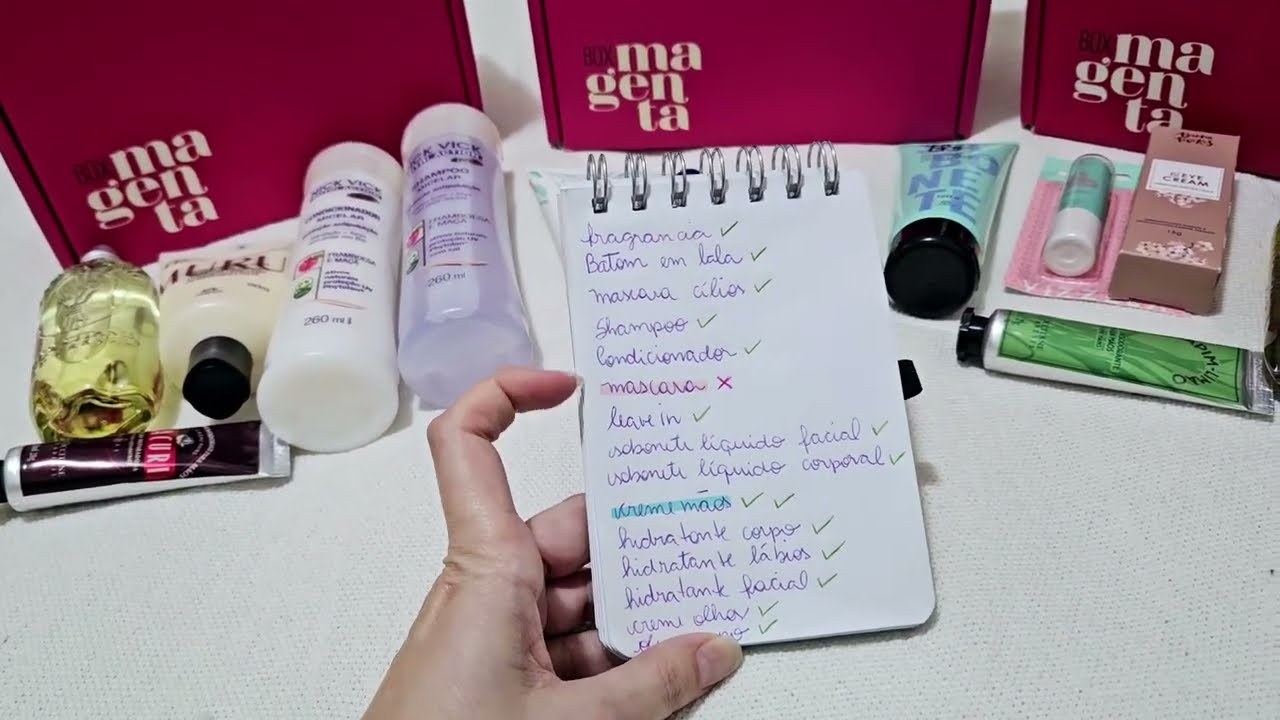 BOX magenta
BOX magenta
BOX magenta
MURU
NICK VICK
CONDICIONADOR
MICELAR
FRAMBOESA
E MAÇÃ
260 ml
NICK VICK
SHAMPOO
MICELAR
FRAMBOESA
E MAÇÃ
260 ml
BO
NE
TE
EYE
CREAM
15g
VIZZ
fragrancia ✓
Batom em bala ✓
mascara cílios ✓
Shampoo ✓
Condicionador ✓
mascara x
leave in ✓
sabonete líquido facial ✓
sabonete líquido corporal ✓
creme mãos ✓ ✓
hidratante corpo ✓
hidratante lábios ✓
hidratante facial ✓
creme olhos ✓